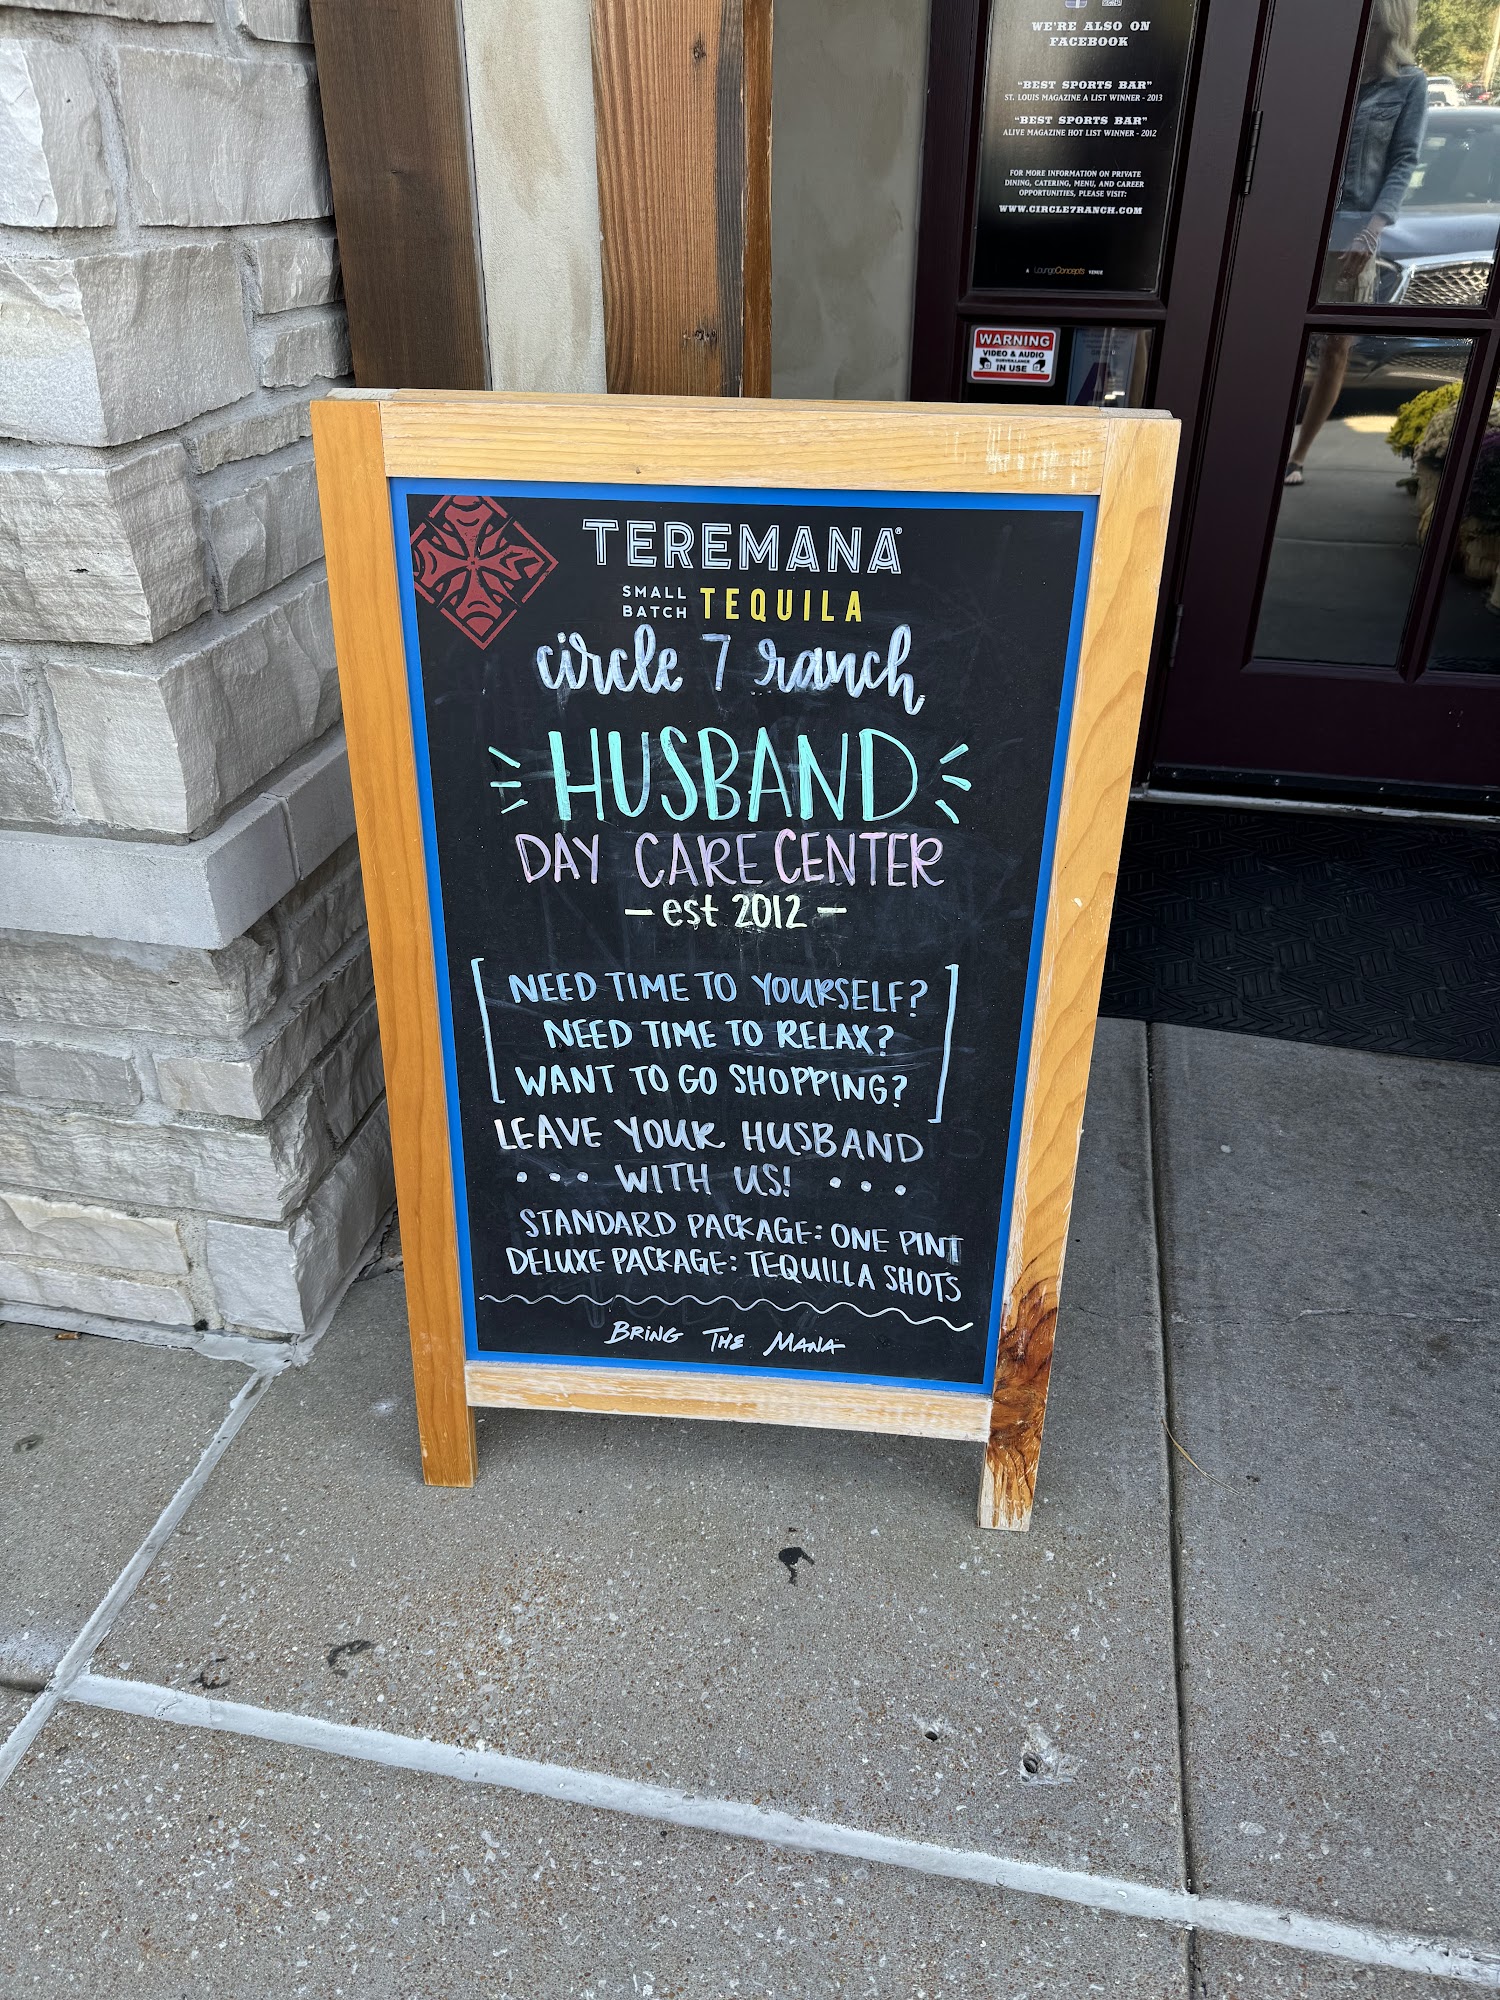 WE'RE ALSO ON
FACEBOOK
"BEST SPORTS BAR"
ST. LOUIS MAGAZINE A LIST WINNER - 2013
"BEST SPORTS BAR"
ALIVE MAGAZINE HOT LIST WINNER - 2012
FOR MORE INFORMATION ON PRIVATE
DINING, CATERING, MENU, AND CAREER
OPPORTUNITIES, PLEASE VISIT:
WWW.CIRCLE7RANCH.COM
A LoungeConcepts VENUE
WARNING
VIDEO & AUDIO
SURVEILLANCE
IN USE
TEREMANA®
SMALL BATCH TEQUILA
circle 7 ranch
HUSBAND
DAY CARE CENTER
- est 2012 -
NEED TIME TO YOURSELF?
NEED TIME TO RELAX?
WANT TO GO SHOPPING?
LEAVE YOUR HUSBAND
... WITH US! ...
STANDARD PACKAGE: ONE PINT
DELUXE PACKAGE: TEQUILLA SHOTS
BRING THE MANA